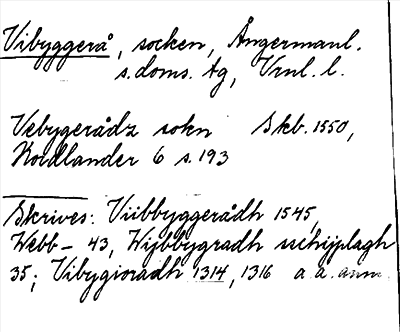 Vibyggerå, socken, Ångermanl.
s.doms. tg, Vrnl. l.
Vebygerådz sokn Skb. 1550,
Nordlander 6 s. 193
Skrives: Viibbyggerådh 1545,
Webb- 43, Wijbbygradh sschijplagh
35; Vibygioradh 1314, 1316 a. a. anm.